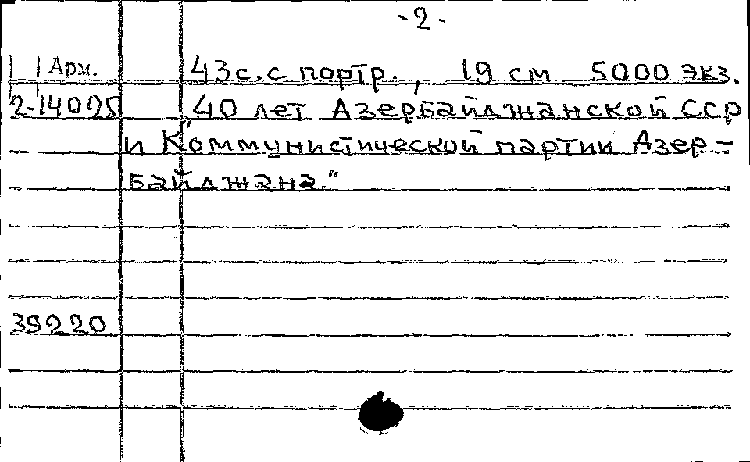 -2-
Арм. 43с. с портр., 19 см 5000 экз.
2-14025 40 лет Азербайджанской ССР
и Коммунистической партии Азер-
байджана."
39220